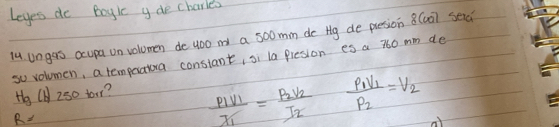 Leyes de Boyle y de charles
14. Un gas ocupa un volumen de 400 ml a 500 mm de Hg de presión ¿Cuál será
su volumen, a temperatura constant, si la presion es a 760 mm de
Hg (b) 250 torr?
R=
P1V1/T1 = P2V2/T2 P1V1/P2 = V2
a)